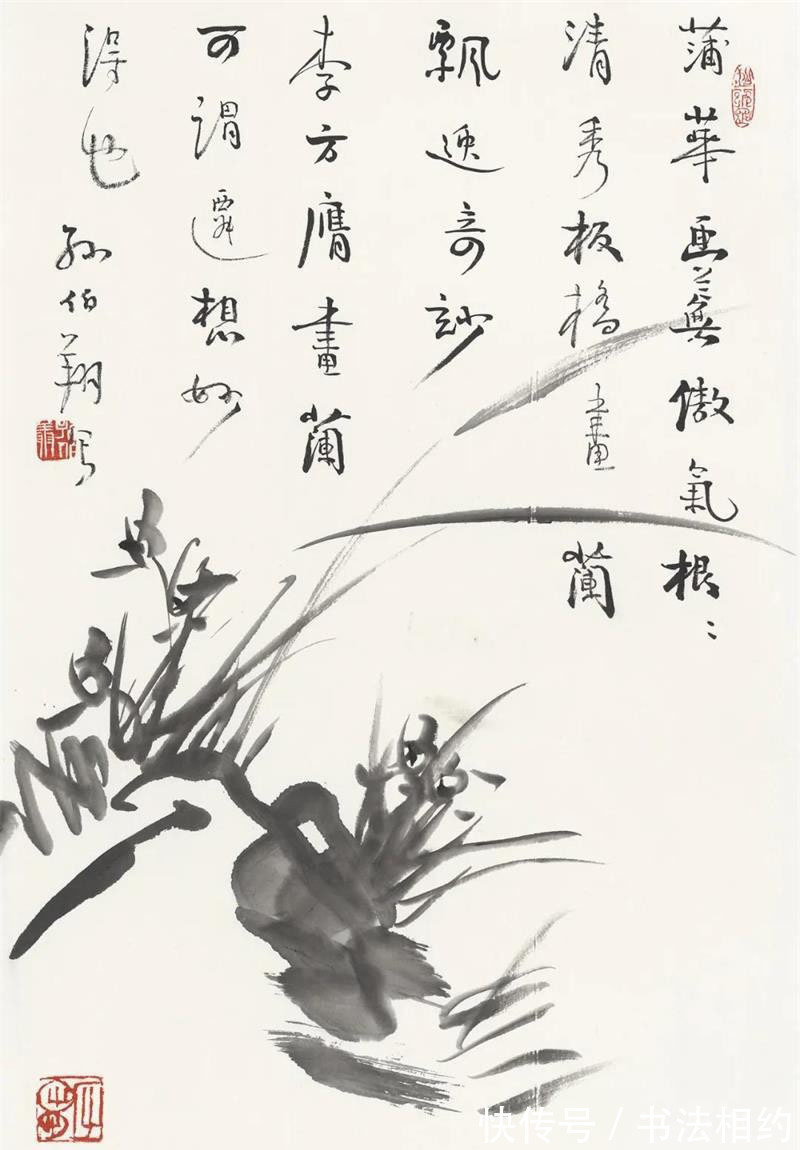 蒲華画傲氣根〻
清秀板橋畫蘭
飄逸奇玅
李方膺畫蘭
可謂遷想妙
得也 孫伯翔写
快传号 / 书法相约